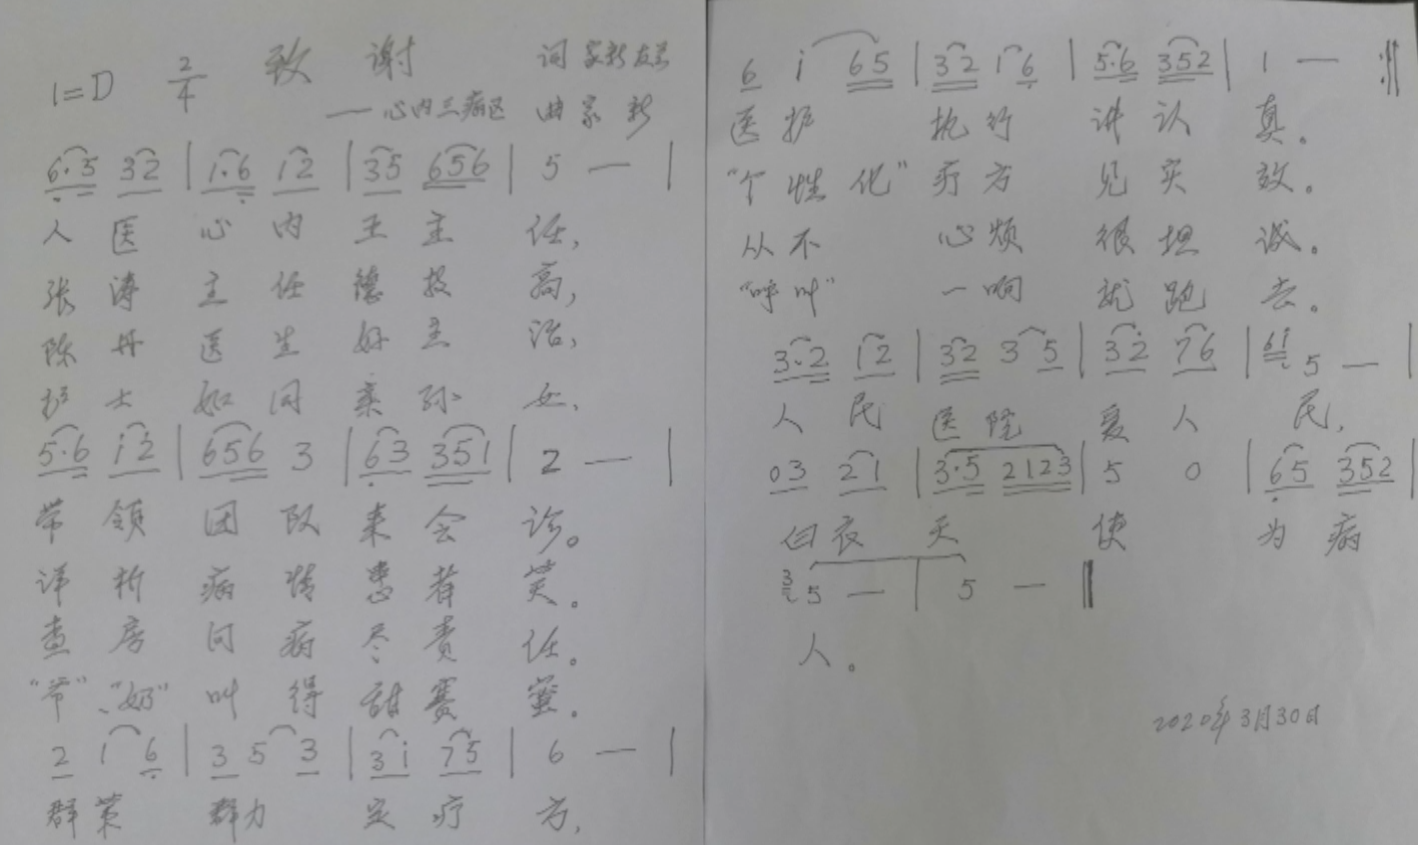 1=D 2/4 致谢 词 家新
——心内三病区 曲 家新
6·5 32 | 1·6 12 | 35 656 | 5 — |
人医心内王主任,
张涛主任德技高,
陈丹医生好主治,
护士如同亲孙女,
5·6 i2 | 656 3 | 63 351 | 2 — |
带领团队来会诊。
详析病情患者笑。
查房问病尽责任。
“爷”、“奶”叫得甜赛蜜。
2 1 6 | 3 5 3 | 3i 75 | 6 — |
群策群力定疗方,
6 i 65 | 32 16 | 5·6 352 | 1 — :‖
医护执行讲认真。
“个性化”疗方见实效。
从不心烦很坦诚。
“呼叫”一响就跑去。
3·2 12 | 32 3 5 | 32 76 | 6i 5 — |
人民医院爱人民,
03 21 | 3·5 2123 | 5 0 | 65 352 |
白衣天使为病
3 5 — | 5 — ‖
人。
2020年3月30日